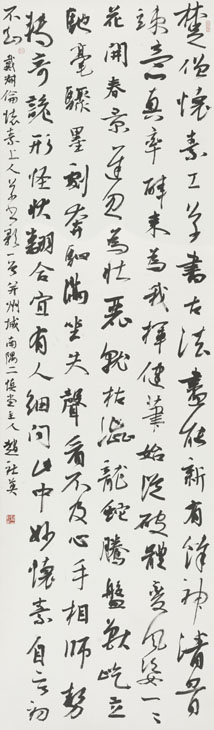 楚僧懷素工草書古法盡能新有餘神清骨
竦意真率醉來為我揮健筆始從破體變風姿一一
花開春景遲忽為壯麗就枯澀龍蛇騰盤獸屹立
馳毫驟墨劇奔駟滿坐失聲看不及心手相師勢
轉奇詭形怪狀翻合宜有人細問此中妙懷素自言初
不知 戴叔倫懷素上人草書歌一首并州城南隅二慎堂主人趙社英